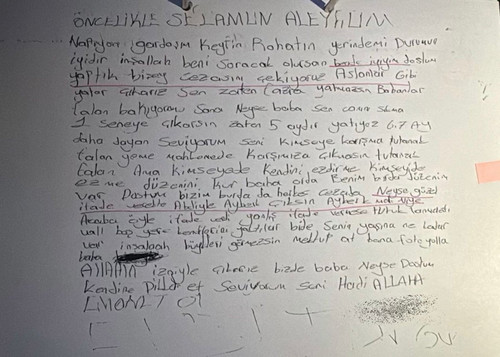 ÖNCELİKLE SELAMUN ALEYKÜM
Napıyon gardaşım Keyfin Rahatın yerindemi Durumun
iyidir inşallah beni soracak olursan bende iyiyim dostum
yaptık bizey cezasını çekiyoruz Aslanlar Gibi
yatar çıkarız Sen zaten fazla yatmazsın Babanlar
falan bakıyorum Sana Neyse baba Sen canın sıkma
1 seneye çıkarsın zaten 5 aydır yatıyoz 6.7 AY
daha dayan Seviyorum seni Kimseye karışma tutanak
falan yeme mahkemede Karşımıza Çıkmasın tutanak
falan Ama Kimseyede Kendini ezdirme Kimseyide
ezme düzenini Kur baba orda Benim burda düzenim
var Dostum bizim burda da herkes Neyse güzel
ifade verelim Aliyle Aykut Çıksın Aykut
Acaba öyle ifade verse yanlış ifade verirse tutuk
vall boş yere kendilerini yaktılar bide Senin yaşına ne kadar
var inşaalah büyükleri görmezsin mektup at bana foto yolla
baba
ALLAHIN izniyle çıkarız bizde baba Neyse Dostum
Kendine Dikkat et Seviyorum Seni Hadi ALLAHA
EMANET OL